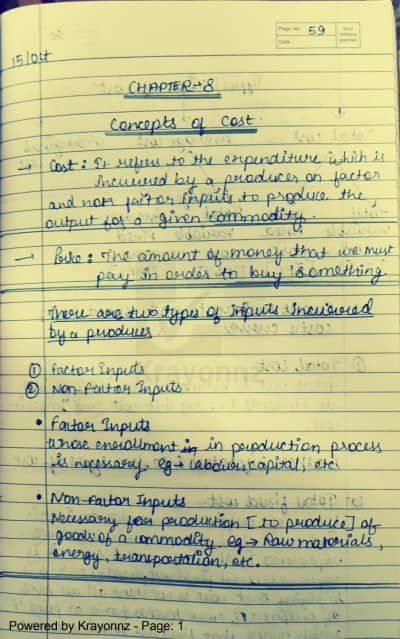 Page No. 59
Date
15/Oct
CHAPTER → 8
Concepts of Cost.
→ Cost : It refers to the expenditure which is
incurered by a producer on factor
and non factor inputs to produce the
output for a given commodity.
→ Price : The amount of money that we must
pay in order to buy something.
There are two types of Inputs incurered
by a producer
① Factor Inputs
② Non-Factor Inputs.
• Factor Inputs
whose enrollment in in production process
is necessary. eg → labour, capital, etc.
• Non-Factor Inputs
Necessary for production [to produce] of
goods of a commodity. eg → Raw materials,
energy, transportation, etc.
Krayonnz
Powered by Krayonnz - Page: 1